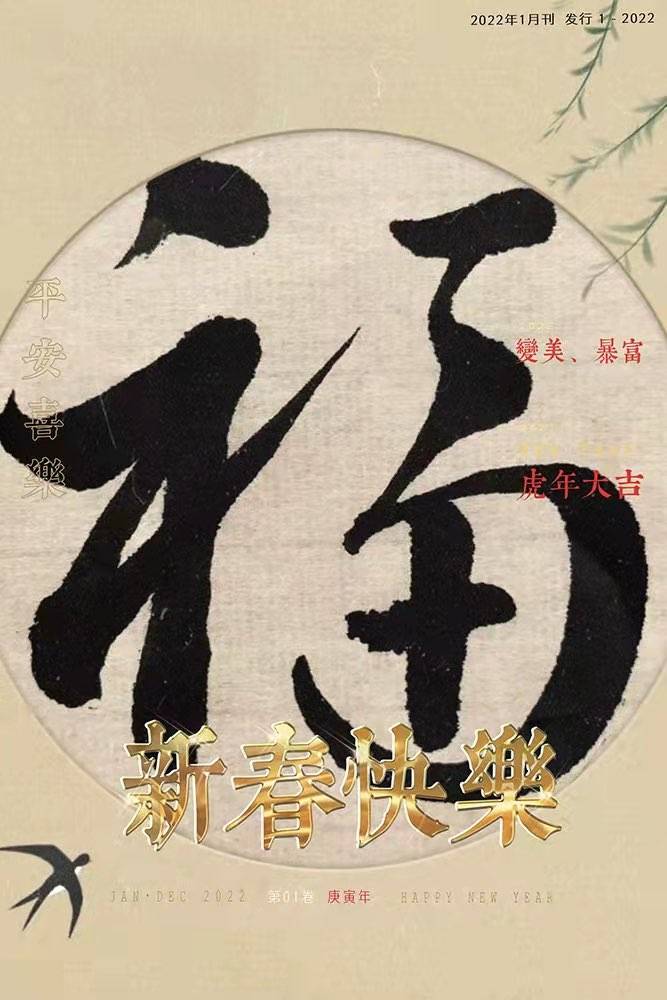 2022年1月刊 发行 1 - 2022
福
平安喜樂
變美、暴富
虎年大吉
新春快樂
JAN·DEC 2022 第01卷 庚寅年 HAPPY NEW YEAR